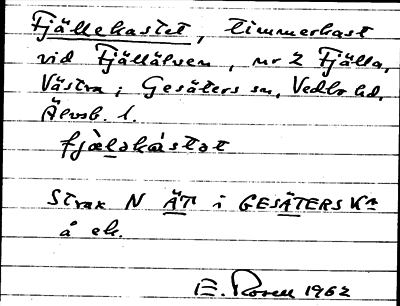 Fjällekastet, timmerkast
vid Fjällälven, nr 2 Fjälla,
Västra; Gesäters sn, Vedbo hd,
Älvsb. l.
fjæ̀lǝkástǝt
Strax N ÄT i GESÄTERS Kn
å ek.
E. Rosell 1962